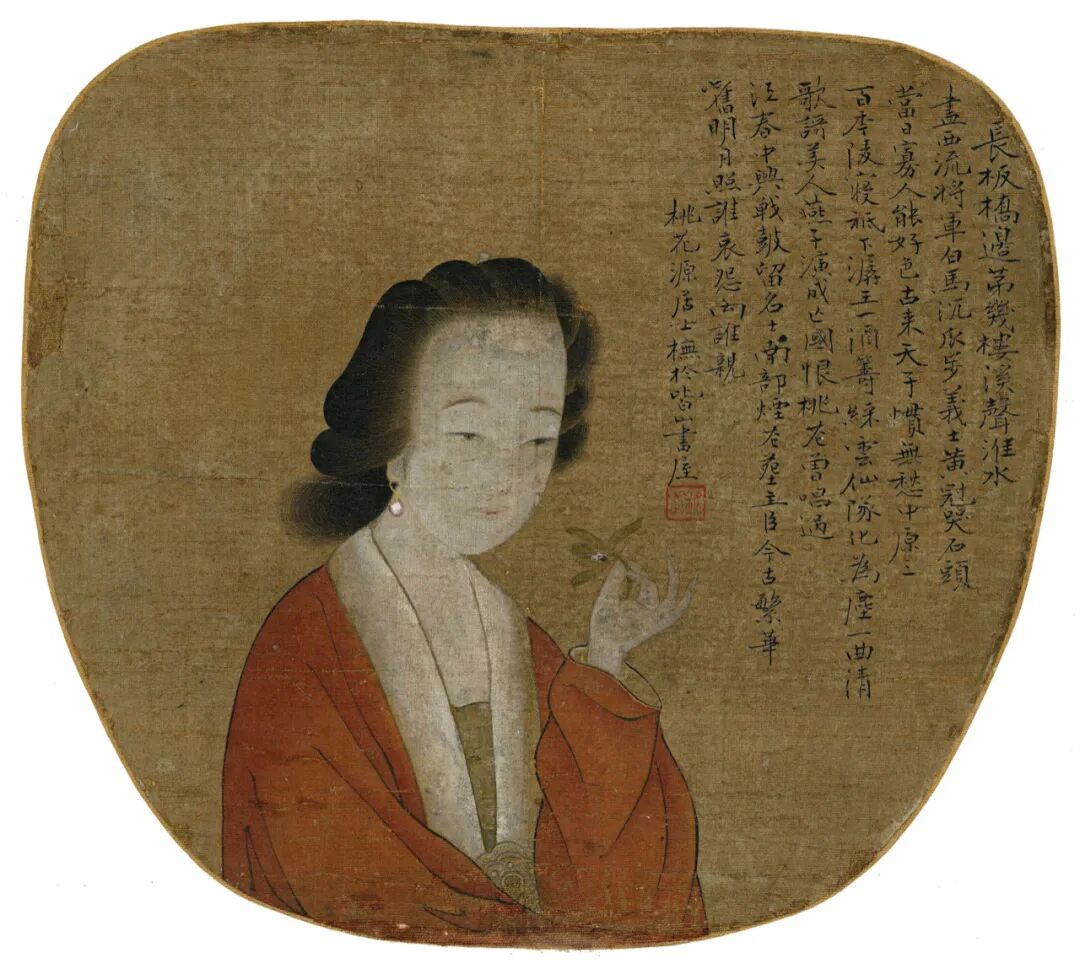 長板橋邊第幾樓溪聲淮水
盡西流將軍白馬沉瓜步義士黃冠哭石頭
當日寡人能好色古來天子慣無愁中原二
百年陵寢祇下王一酒籌綵雲仙隊化為塵一曲清
歌美人燕子演成亡國恨桃花曾唱過
江春中興戰鼓留名士南部煙花主臣今古繁華
舊明月照誰哀怨誰親
桃花源居士橅於皆山書屋